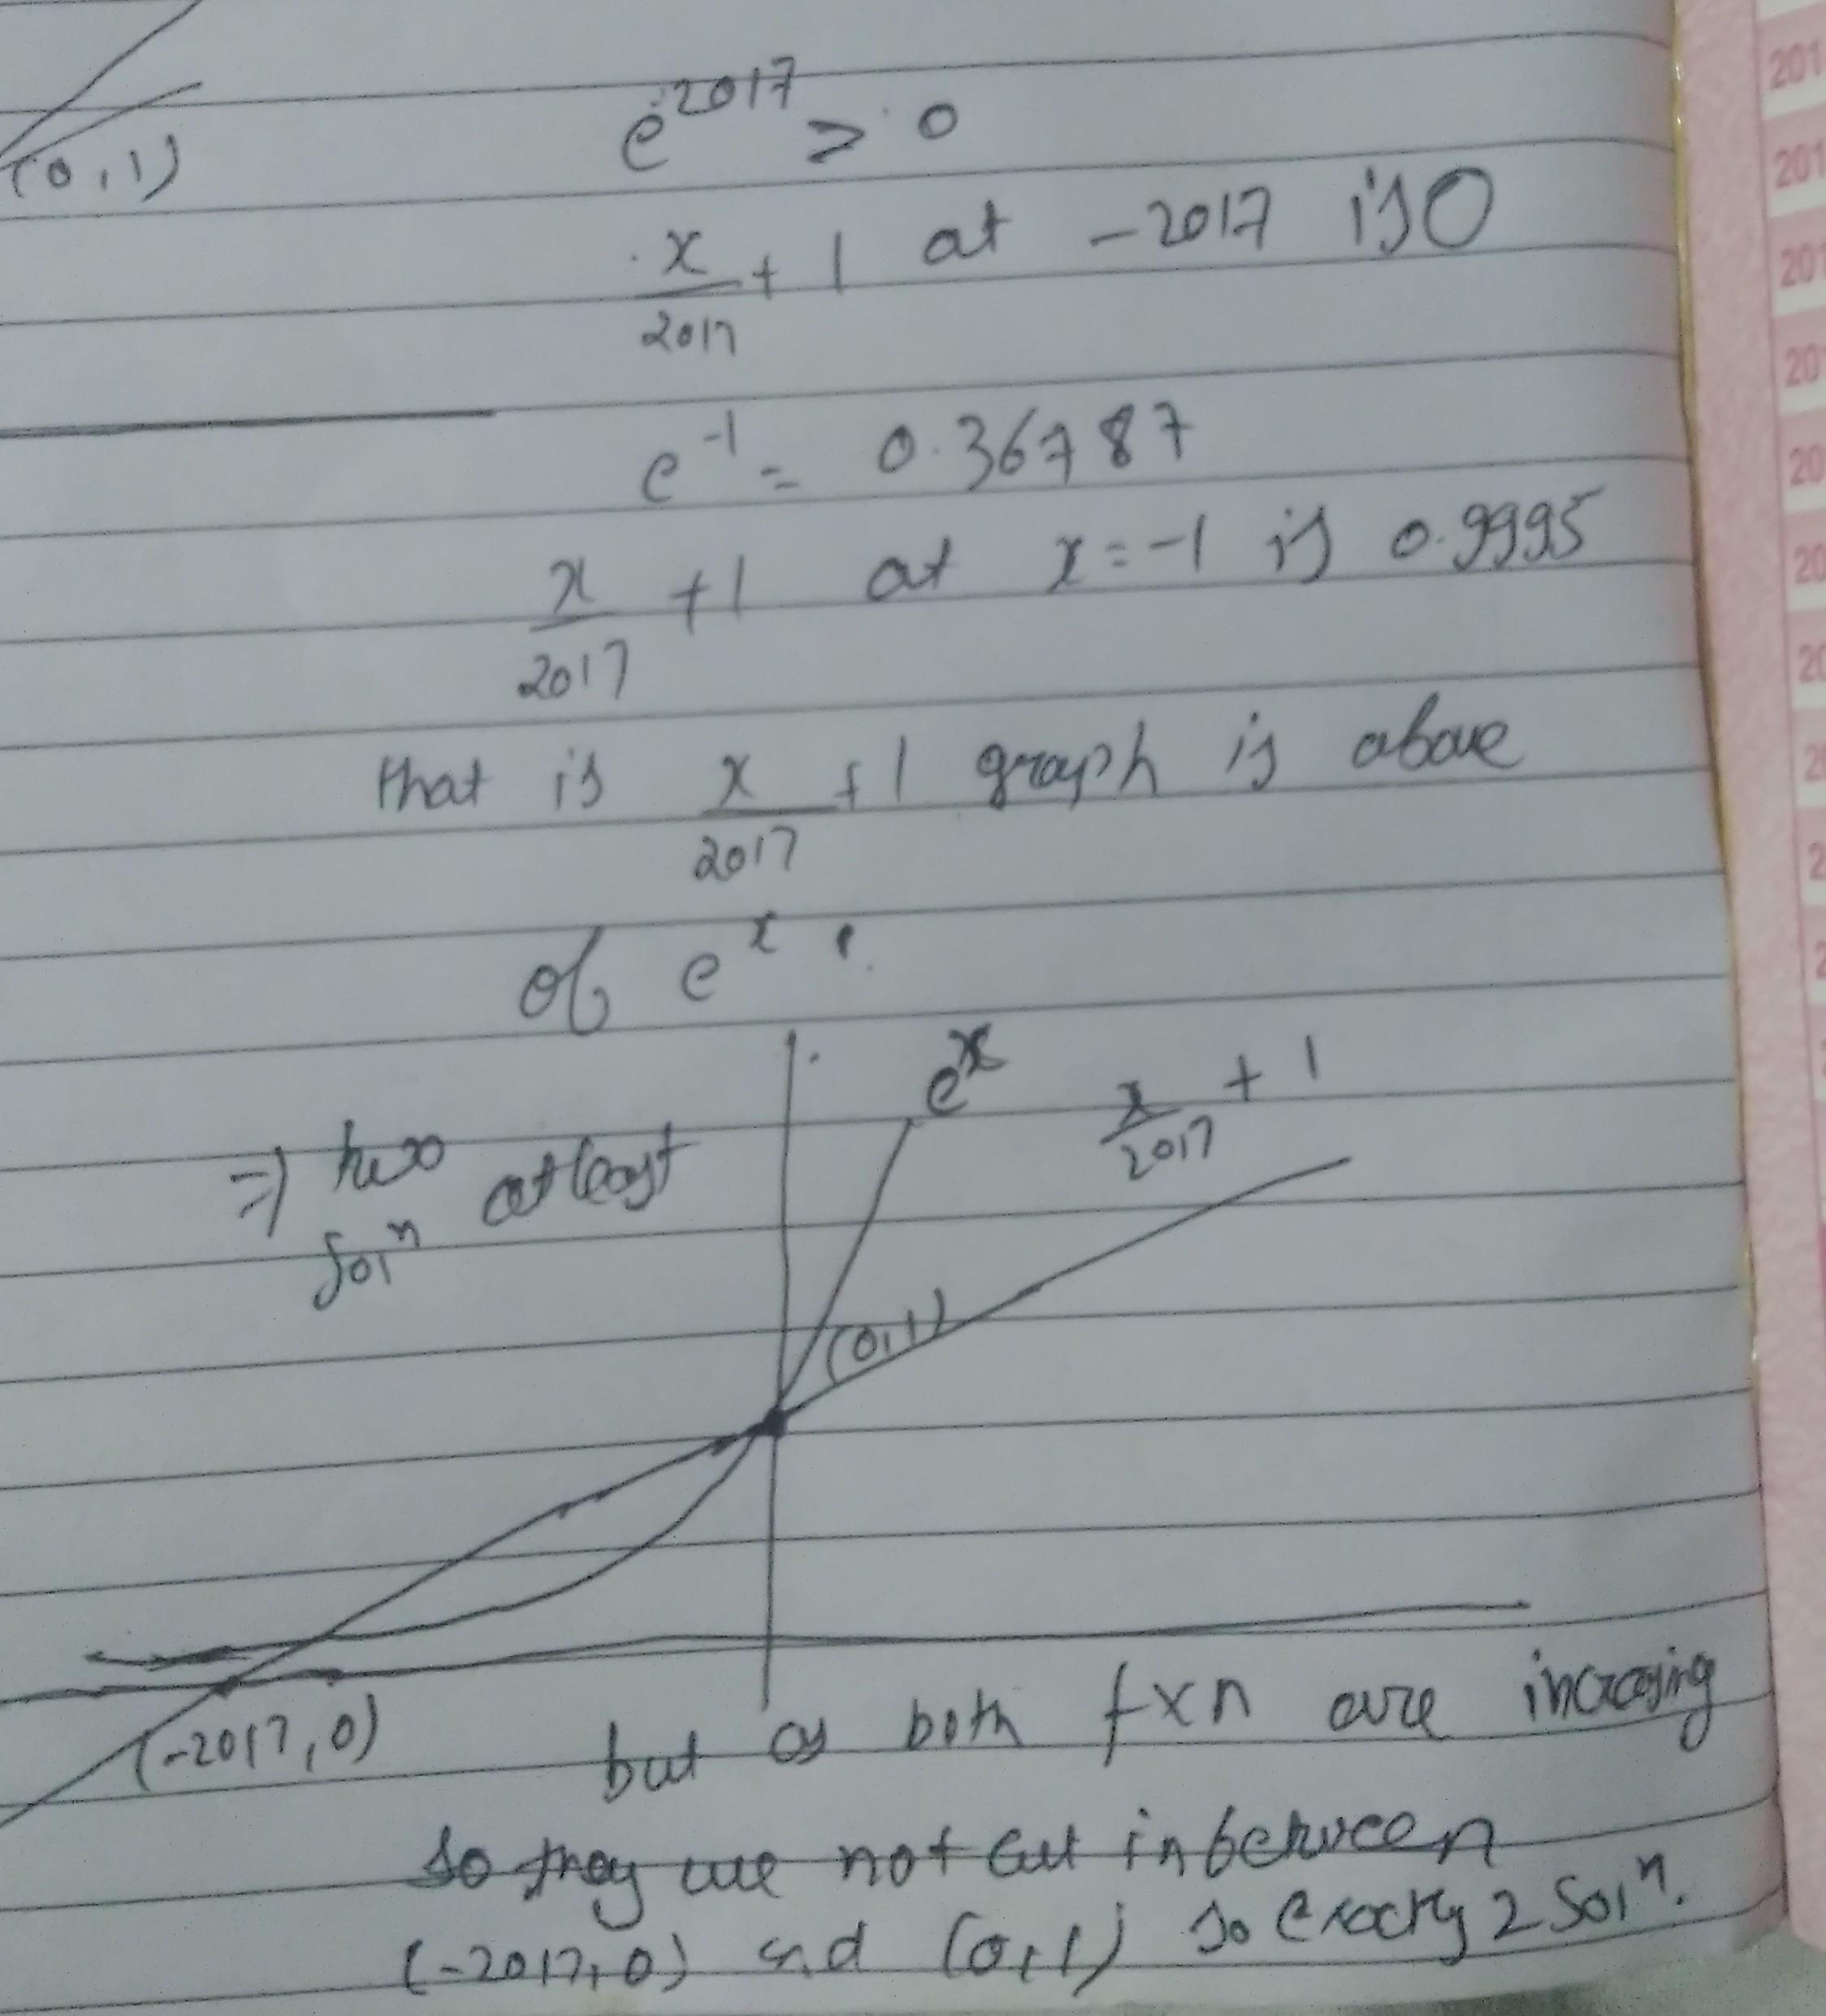 (0,1)
e^-2017 > 0
x/2017 + 1 at -2017 is 0
e^-1 = 0.36787
x/2017 + 1 at x=-1 is 0.9995
that is x/2017 + 1 graph is above
of e^x.
e^x
x/2017 + 1
=) two atleast
sol^n
(0,1)
(-2017,0)
but as both fxn are increasing
so they are not cut in between
(-2017,0) and (0,1) so exactly 2 sol^n.
201
201
201
20
20
20
20
2
2
2